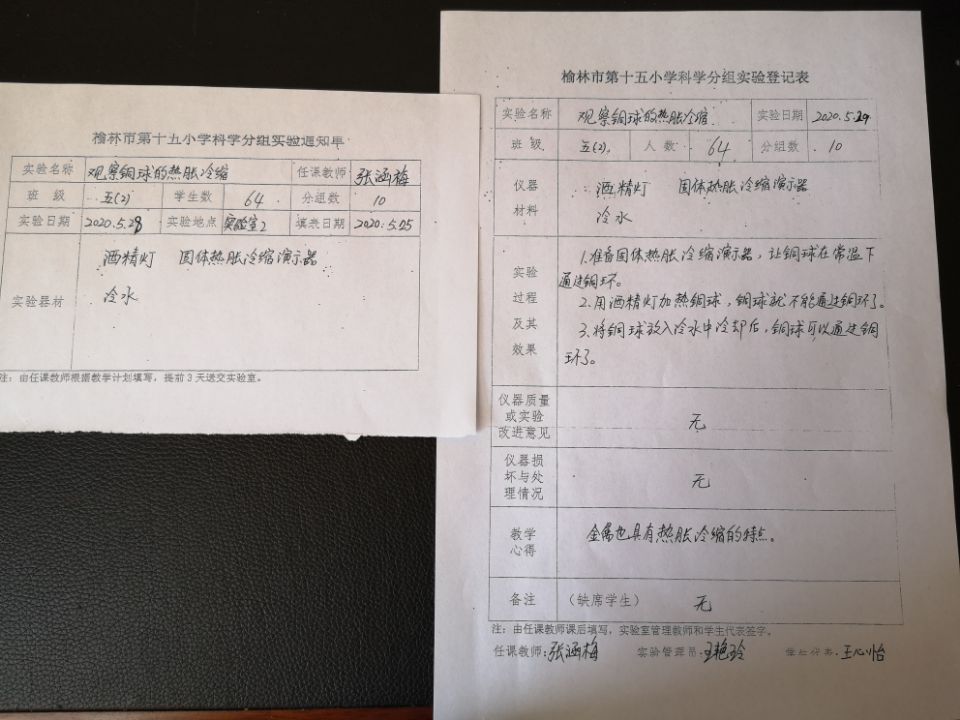 榆林市第十五小学科学分组实验通知单
实验名称 观察铜球的热胀冷缩 任课教师 张涵梅
班 级 五(2) 学生数 64 分组数 10
实验日期 2020.5.28 实验地点 实验室2 填表日期 2020.5.25
实验器材
酒精灯 固体热胀冷缩演示器
冷水
注：由任课教师根据教学计划填写，提前3天送交实验室。
榆林市第十五小学科学分组实验登记表
实验名称 观察铜球的热胀冷缩 实验日期 2020.5.29
班 级 五(2) 人 数 64 分组数 10
仪器
材料
酒精灯 固体热胀冷缩演示器
冷水
实验
过程
及其
效果
1.准备固体热胀冷缩演示器，让铜球在常温下
通过铜环。
2.用酒精灯加热铜球，铜球就不能通过铜环了。
3.将铜球放入冷水中冷却后，铜球可以通过铜
环了。
仪器质量
或实验
改进意见
无
仪器损
坏与处
理情况
无
教学
心得
金属也具有热胀冷缩的特点。
备注 （缺席学生） 无
注：由任课教师课后填写，实验室管理教师和学生代表签字。
任课教师：张涵梅 实验管理员：王艳玲 学生代表：王心怡